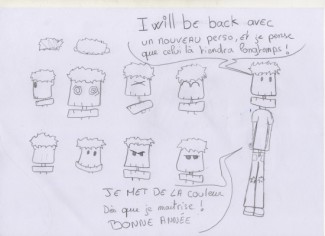 I will be back avec
un nouveau perso, et je pense
que celui là tiendra longtemps !
JE MET DE LA couleur
Dès que je maîtrise !
BONNE ANNÉE